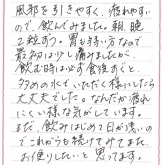 風邪を引きやすく、疲れやすい
ので、飲んでみました。朝、晩
2粒ずつ。胃も弱い方なので
最初は少し痛みましたが、
飲む時は必ず食後すぐと、
多めの水でいただく様にしたら
大丈夫でした。なんだか疲れ
にくい様な気がしています。
まだ、飲みはじめて日が浅いの
でこれからも続けてみてまた、
お便りしたいと思ってます。